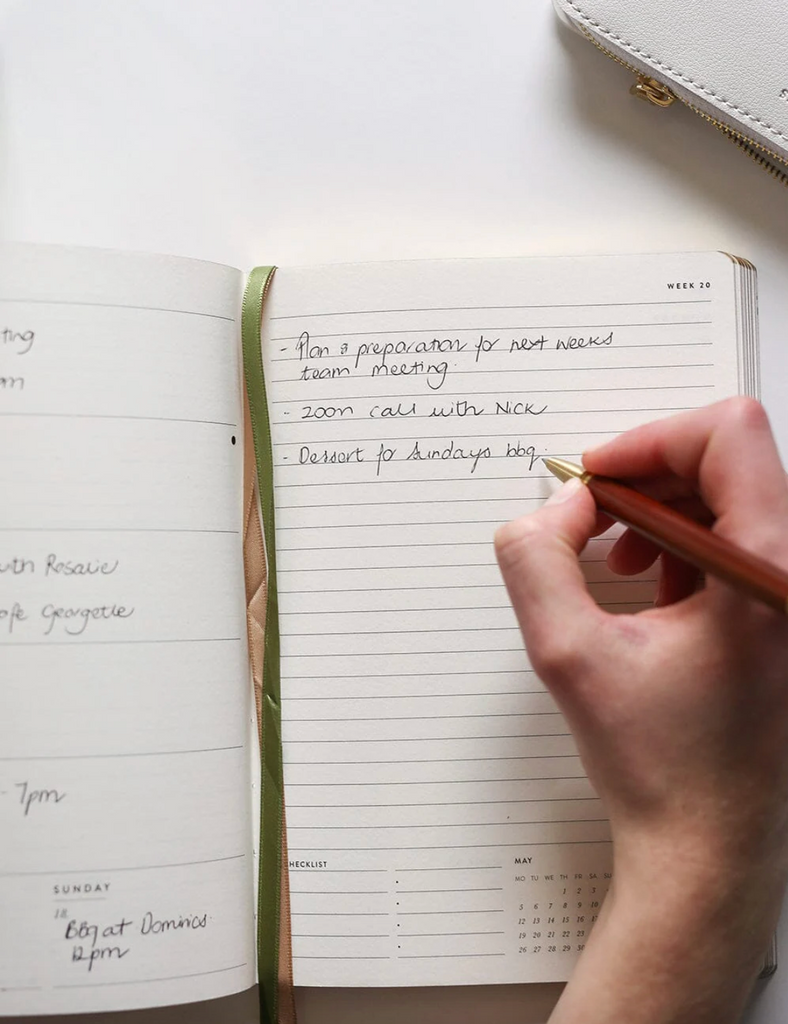 ting
am
with Rosalie
afe Georgette
- 7pm
SUNDAY
18
BBq at Dominics
12pm
WEEK 20
- Plan & preparation for next weeks
team meeting.
- zoom call with Nick
- Dessert for Sundays bbq.
HECKLIST
MAY
MO TU WE TH FR SA SU
1 2 3
5 6 7 8 9 10
12 13 14 15 16
19 20 21 22 23
26 27 28 29 30